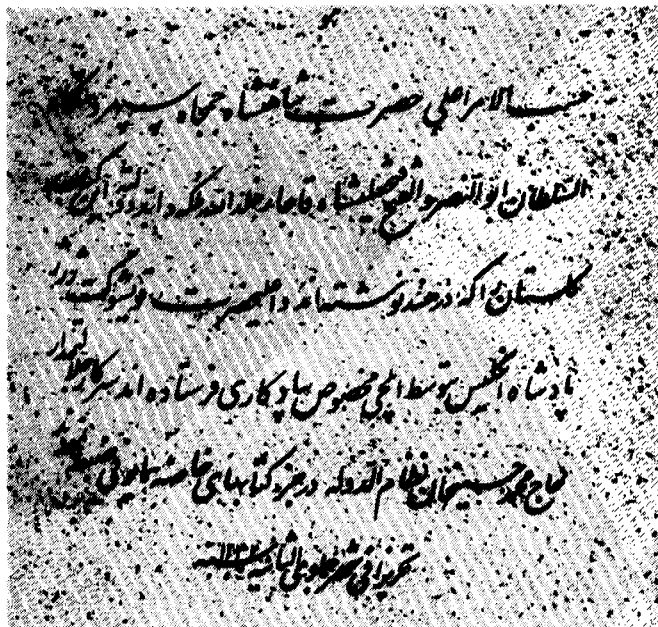 هو
حسب الامر اعلی حضرت شاهنشاه جمجاه سپهر
السلطان ابو النصر و الفتح فتحعلیشاه قاجار خلد الله ملکه و ابد دولته این
گلستان را که در هند نوشته اند و اعلیحضرت قویشوکت
پادشاه انگلیس بتوسط ایلچی مخصوص بیادگاری فرستاده اند سرکار
حاج محمد حسینخان نظام الدوله در جزو کتابهای خاصه همایونی
تحریرا فی شهر جمادی الثانیه سنه